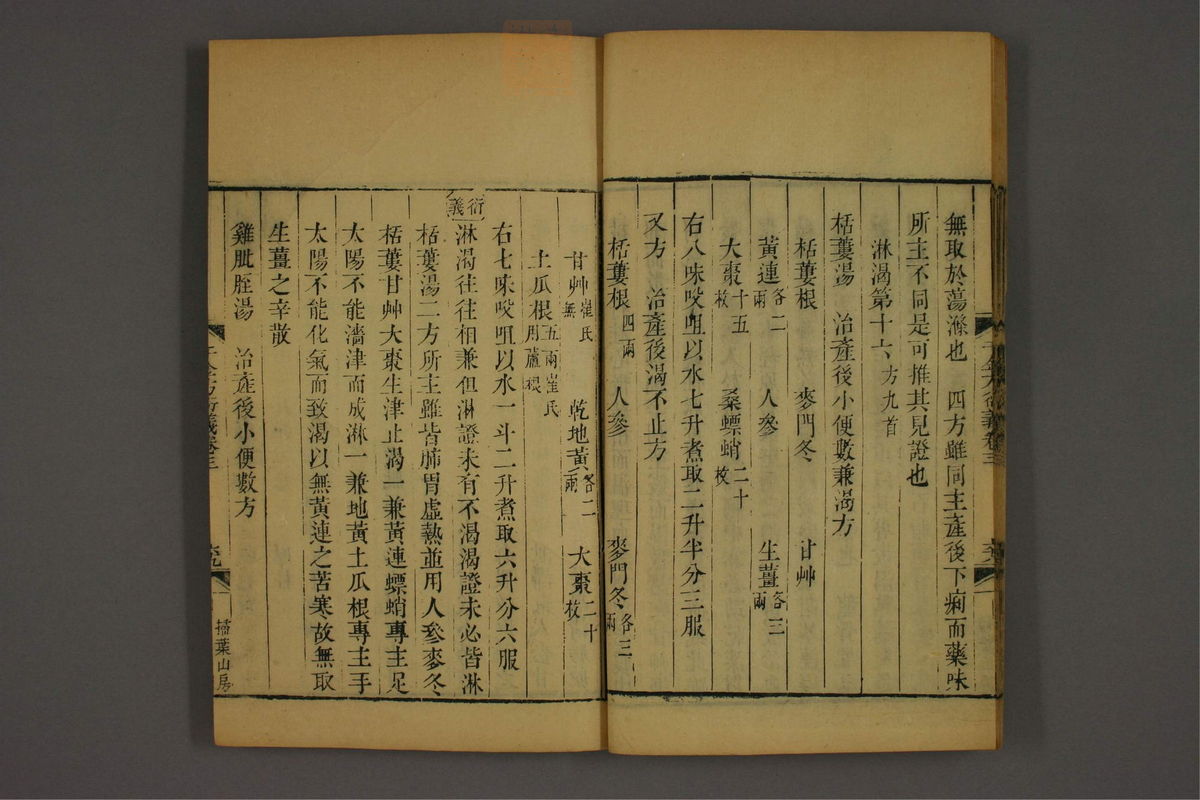 無取於蕩滌也　四方雖同主產後下痢而藥味
所主不同是可推其見證也
淋渴第十六方九首
栝蔞湯　治產後小便數兼渴方
栝蔞根　麥門冬　甘艸
黃連各二兩　人參　生薑各三兩
大棗十五枚　桑螵蛸二十枚
右八味㕮咀以水七升煮取二升半分三服
又方　治產後渴不止方
栝蔞根四兩　人參　麥門冬各三兩
甘艸崔氏無　乾地黃各二兩　大棗二十枚
土瓜根五兩崔氏用蘆根
右七味㕮咀以水一斗二升煮取六升分六服
衍義
淋渴往往相兼但淋證未有不渴渴證未必皆淋
栝蔞湯二方所主雖皆肺胃虛熱並用人參麥冬
栝蔞甘艸大棗生津止渴一兼黃連螵蛸專主足
太陽不能濇津而成淋一兼地黃土瓜根專主手
太陽不能化氣而致渴以無黃連之苦寒故無取
生薑之辛散
雞肶胵湯　治產後小便數方
千金方衍義卷三
掃葉山房